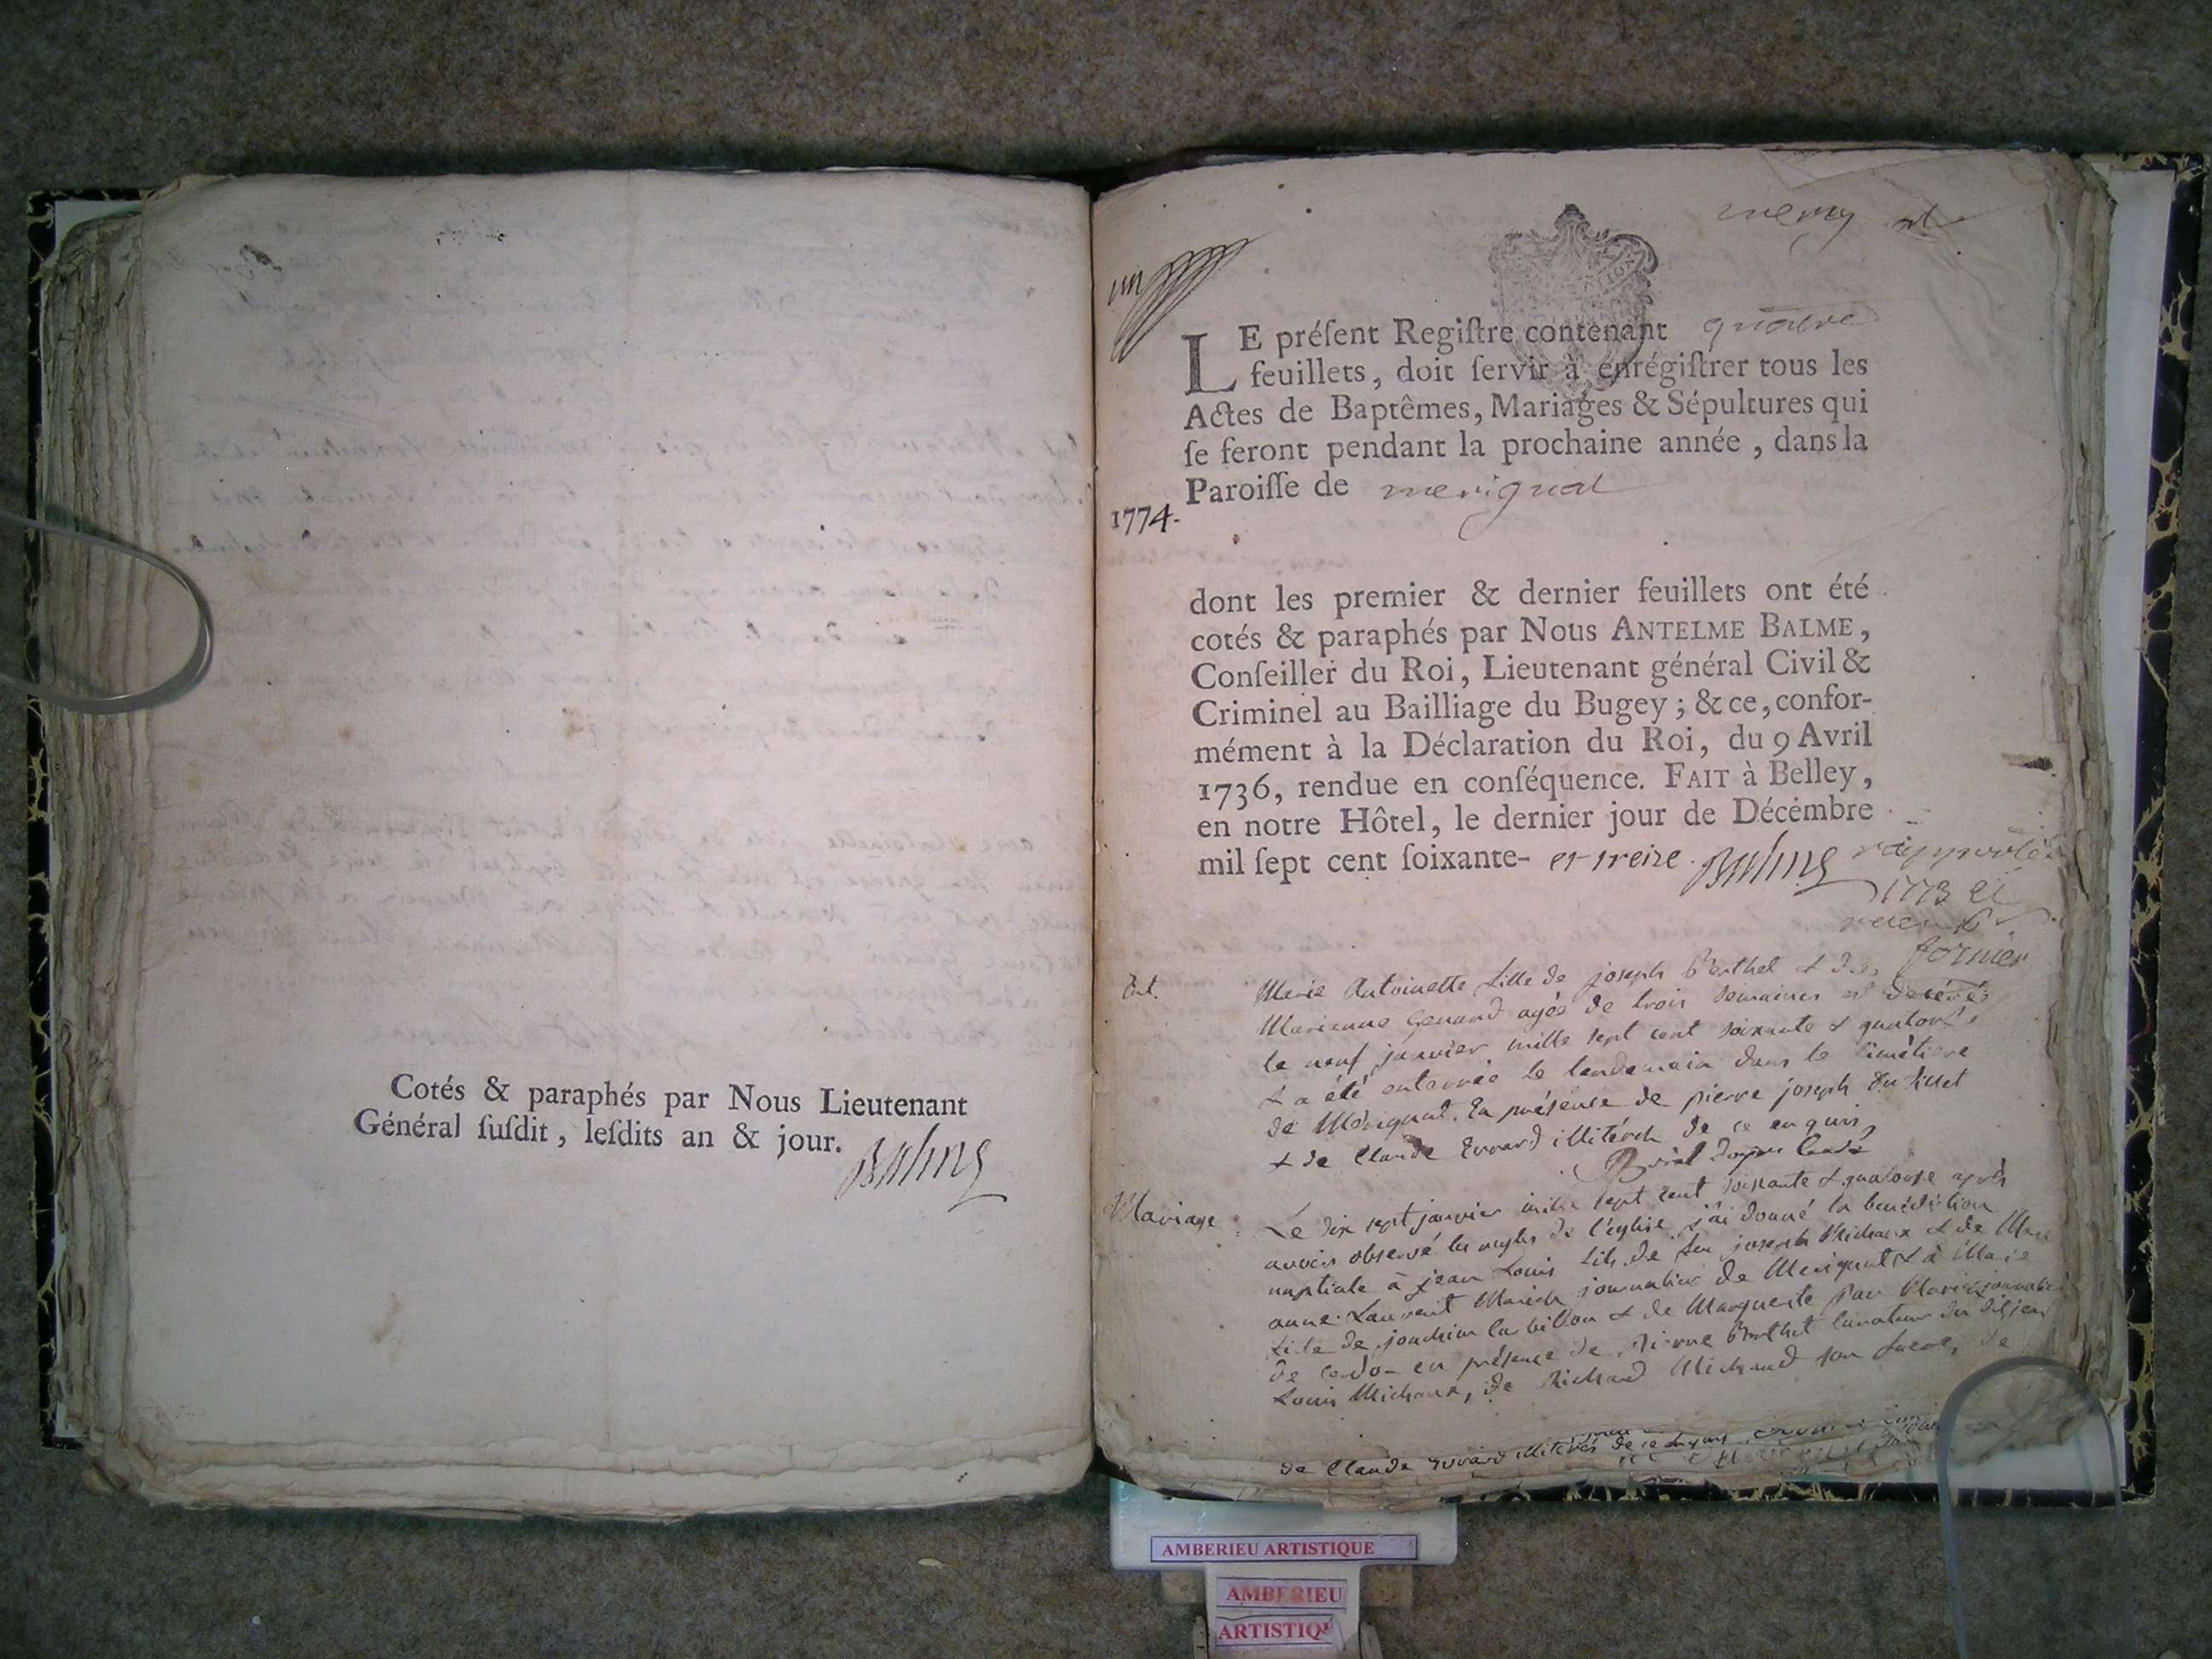 Cotés & paraphés par Nous Lieutenant
Général ſuſdit, leſdits an & jour.
Balme
un
LE préſent Regiſtre contenant quatre
feuillets, doit ſervir à enrégiſtrer tous les
Actes de Baptêmes, Mariages & Sépultures qui
ſe feront pendant la prochaine année, dans la
Paroiſſe de merignat
1774.
dont les premier & dernier feuillets ont été
cotés & paraphés par Nous ANTELME BALME,
Conſeiller du Roi, Lieutenant général Civil &
Criminel au Bailliage du Bugey; & ce, confor-
mément à la Déclaration du Roi, du 9 Avril
1736, rendue en conſéquence. FAIT à Belley,
en notre Hôtel, le dernier jour de Décembre
mil ſept cent ſoixante- et treize. Balme
1773 et
fornier
Ent.
Marie Antoinette fille de joseph Berthet & de
Marianne agée de trois semaines est décédée
le neuf janvier mille sept cent soixante & quatorze
& a été enterrée le lendemain dans le cimetiere
de Merignat. En présence de pierre joseph du tillet
& de Claude Evrard illitérés de ce enquis
Mariage
Le dix sept janvier mille sept cent soixante & quatorze après
avoir observé les regles de l'église j'ai donné la bénédiction
nuptiale à jean Louis fils de feu joseph Michaux & de
anne Laurent journalier de Merignat & à Marie
fille de joachim & de Marguerite
de cerdon en présence de Pierre Berthet curateur du dit jean
Louis Michaux, de Richard Michaud son frere, de
de Claude Evrard illitérés de ce enquis
AMBERIEU ARTISTIQUE
AMBERIEU
ARTISTIQ